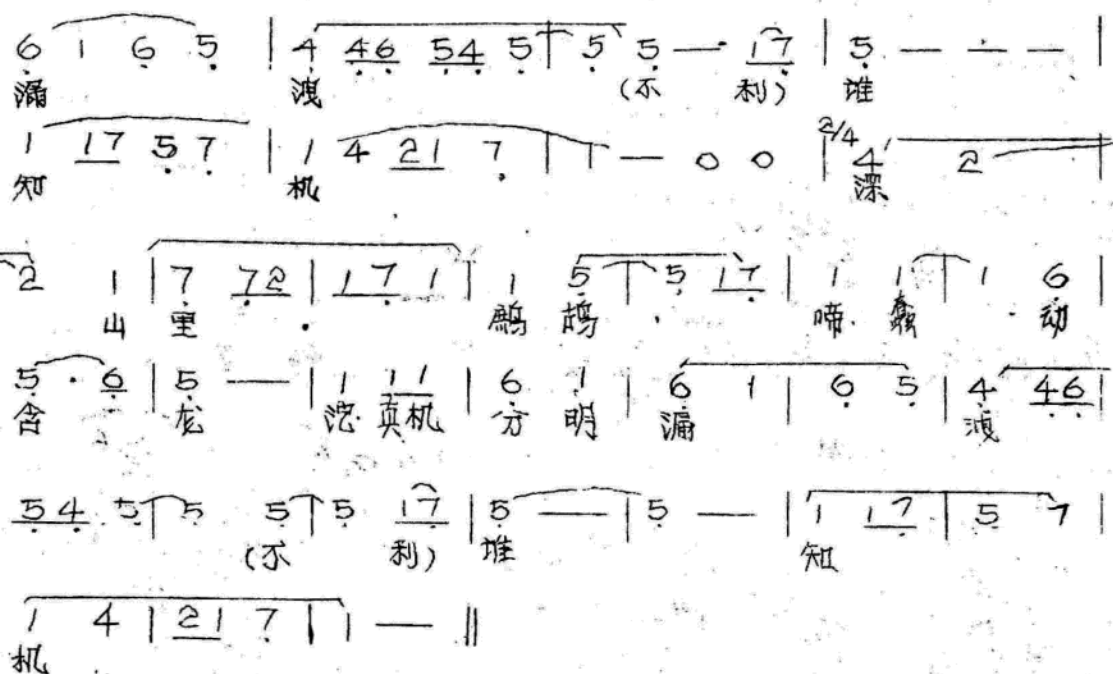 6 1 6 5 | 4 46 54 5 | 5 5 — 17 | 5 — — — |
漏 洩 (不 利) 堆
1 17 5 7 | 1 4 21 7 | 1 — 0 0 | 2/4 4 2 |
知 机 深
2 1 | 7 72 | 17 1 | 1 5 | 5 17 | 1 1 | 1 6 |
山 里 鹧 鸪 啼 蠢 动
5 · 6 | 5 — | 1 11 | 6 1 | 6 1 | 6 5 | 4 46 |
含 龙 真机 分 明 漏 洩
54 5 | 5 5 | 5 17 | 5 — | 5 — | 1 17 | 5 7 |
(不 利) 堆 知
1 4 | 21 7 | 1 — ||
机